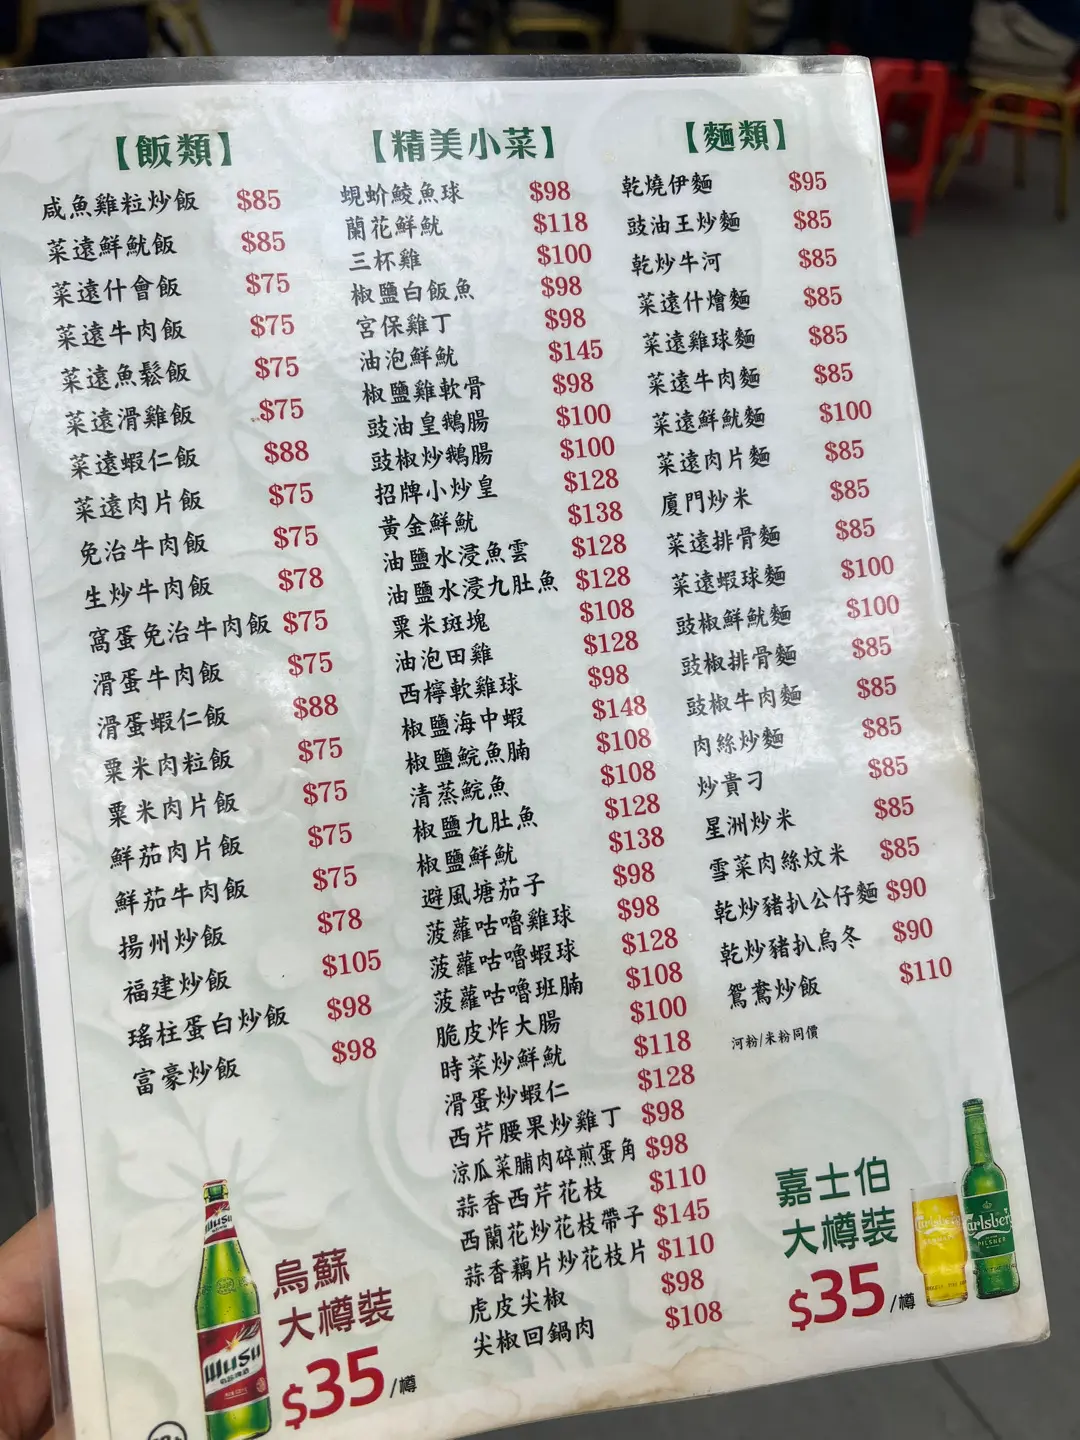 【飯類】
咸魚雞粒炒飯 $85
菜遠鮮魷飯 $85
菜遠什會飯 $75
菜遠牛肉飯 $75
菜遠魚鬆飯 $75
菜遠滑雞飯 $75
菜遠蝦仁飯 $88
菜遠肉片飯 $75
免治牛肉飯 $75
生炒牛肉飯 $78
窩蛋免治牛肉飯 $75
滑蛋牛肉飯 $75
滑蛋蝦仁飯 $88
粟米肉粒飯 $75
粟米肉片飯 $75
鮮茄肉片飯 $75
鮮茄牛肉飯 $75
揚州炒飯 $78
福建炒飯 $105
瑤柱蛋白炒飯 $98
富豪炒飯 $98
【精美小菜】
蜆蚧鯪魚球 $98
蘭花鮮魷 $118
三杯雞 $100
椒鹽白飯魚 $98
宮保雞丁 $98
油泡鮮魷 $145
椒鹽雞軟骨 $98
豉油皇鵝腸 $100
豉椒炒鵝腸 $100
招牌小炒皇 $128
黃金鮮魷 $138
油鹽水浸魚雲 $128
油鹽水浸九肚魚 $128
粟米斑塊 $108
油泡田雞 $128
西檸軟雞球 $98
椒鹽海中蝦 $148
椒鹽鯇魚腩 $108
清蒸鯇魚 $108
椒鹽九肚魚 $128
椒鹽鮮魷 $138
避風塘茄子 $98
菠蘿咕嚕雞球 $98
菠蘿咕嚕蝦球 $128
菠蘿咕嚕班腩 $108
脆皮炸大腸 $100
時菜炒鮮魷 $118
滑蛋炒蝦仁 $128
西芹腰果炒雞丁 $98
涼瓜菜脯肉碎煎蛋角 $98
蒜香西芹花枝 $110
西蘭花炒花枝帶子 $145
蒜香藕片炒花枝片 $110
虎皮尖椒 $98
尖椒回鍋肉 $108
【麵類】
乾燒伊麵 $95
豉油王炒麵 $85
乾炒牛河 $85
菜遠什燴麵 $85
菜遠雞球麵 $85
菜遠牛肉麵 $85
菜遠鮮魷麵 $100
菜遠肉片麵 $85
廈門炒米 $85
菜遠排骨麵 $85
菜遠蝦球麵 $100
豉椒鮮魷麵 $100
豉椒排骨麵 $85
豉椒牛肉麵 $85
肉絲炒麵 $85
炒貴刁 $85
星洲炒米 $85
雪菜肉絲炆米 $85
乾炒豬扒公仔麵 $90
乾炒豬扒烏冬 $90
鴛鴦炒飯 $110
河粉/米粉同價
烏蘇
大樽裝
$35/樽
WUSU
嘉士伯
大樽裝
$35/樽
Carlsberg
PILSNER